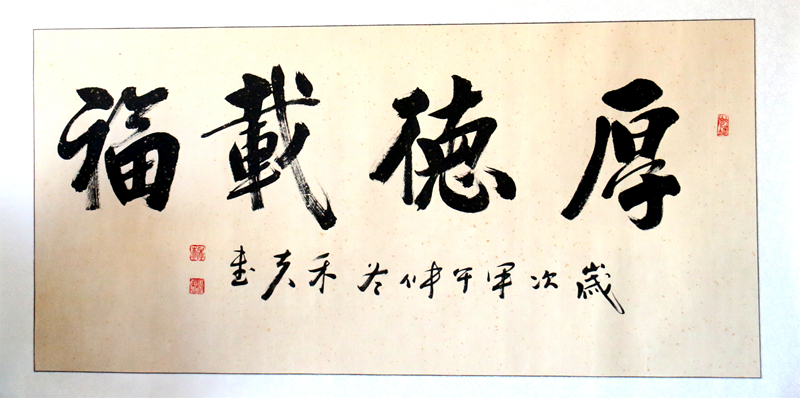 厚德載福
歲次甲午仲冬禾夫書